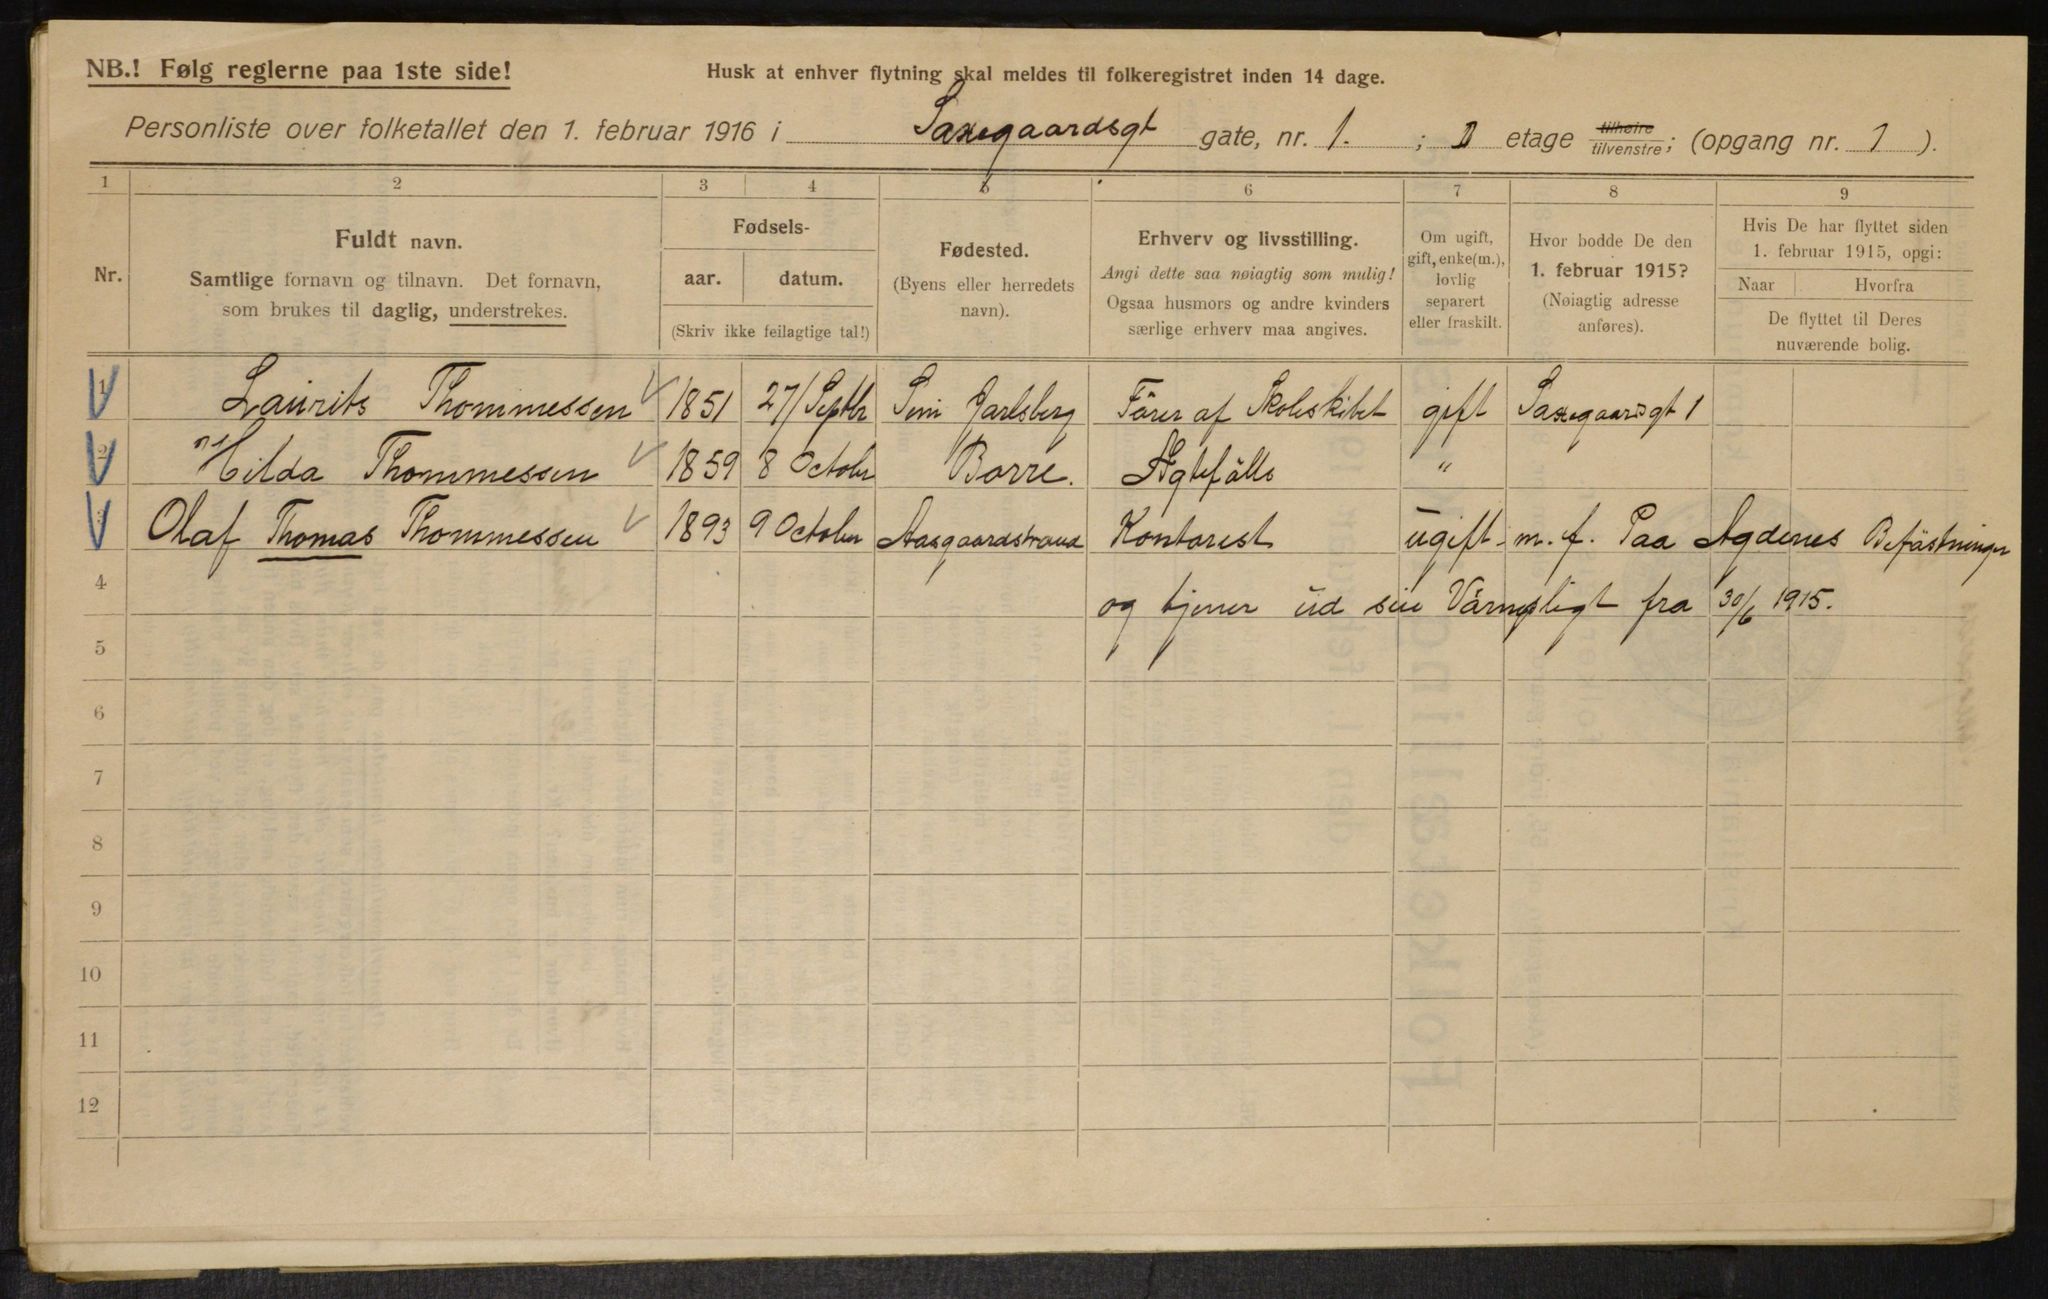 NB.! Følg reglerne paa 1ste side!
Husk at enhver flytning skal meldes til folkeregistret inden 14 dage.
Personliste over folketallet den 1. februar 1916 i Saxegaardsgt gate, nr. 1. ; etage tilhøire tilvenstre; (opgang nr. 1 ).
1 2 3 4 5 6 7 8 9
Nr.
Fuldt navn.
Samtlige fornavn og tilnavn. Det fornavn,
som brukes til daglig, understrekes.
Fødsels-
aar. datum.
(Skriv ikke feilagtige tal!)
Fødested.
(Byens eller herredets
navn).
Erhverv og livsstilling.
Angi dette saa nøiagtig som mulig!
Ogsaa husmors og andre kvinders
særlige erhverv maa angives.
Om ugift,
gift, enke(m.),
lovlig
separert
eller fraskilt.
Hvor bodde De den
1. februar 1915?
(Nøiagtig adresse
anføres).
Hvis De har flyttet siden
1. februar 1915, opgi:
Naar Hvorfra
De flyttet til Deres
nuværende bolig.
1 Laurits Thommessen 1851 27/Septbr Sem Jarlsberg Förer af Skoleskibet gift Saxegaardsgt 1
2 Hilda Thommessen 1859 8 October Borre. Ægtefälle "
3 Olaf Thomas Thommessen 1893 9 October Aasgaardstrand Kontorist ugift m. f. Paa Agdenes Befästninger
4 og tjener ud sin Värnepligt fra 30/6 1915.
5
6
7
8
9
10
11
12